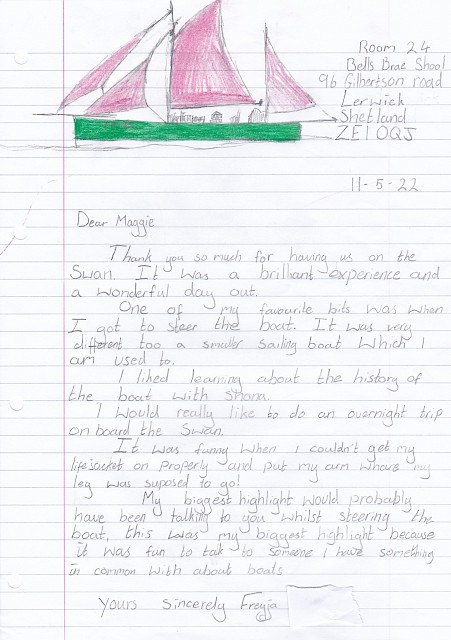 Room 24
Bells Brae Shool
96 Gilbertson road
Lerwick
Shetland
ZE1 0QJ
11-5-22
Dear Maggie
Thank you so much for having us on the
Swan. It was a brilliant experience and
a wonderful day out.
One of my favourite bits was when
I got to steer the boat. It was very
different too a smaller sailing boat which I
am used to.
I liked learning about the history of
the boat with Shona.
I would really like to do an overnight trip
on board the Swan.
It was funny when I couldn't get my
lifejacket on properly and put my arm whare my
leg was suposed to go!
My biggest highlight would probably
have been talking to you whilst steering the
boat, this was my biggest highlight because
it was fun to talk to someone I have something
in common with about boats
Yours sincerely Freyja